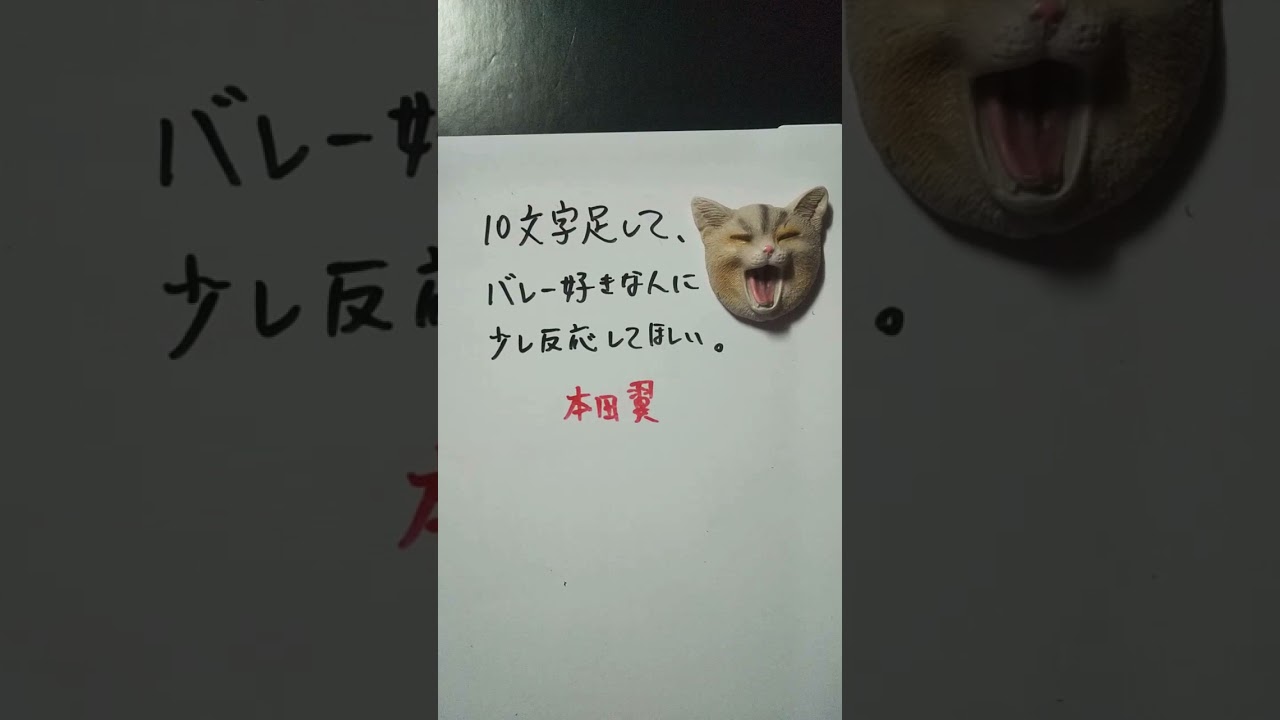 10文字足して、
バレー好きな人に
少し反応してほしい。
本田翼